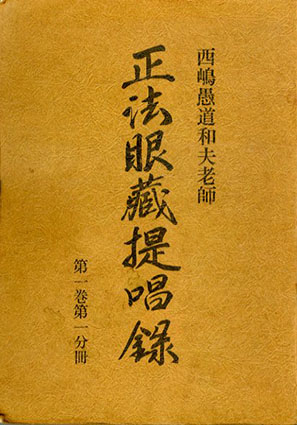 西嶋愚道和夫老師
正法眼藏提唱録
第一巻第一分冊